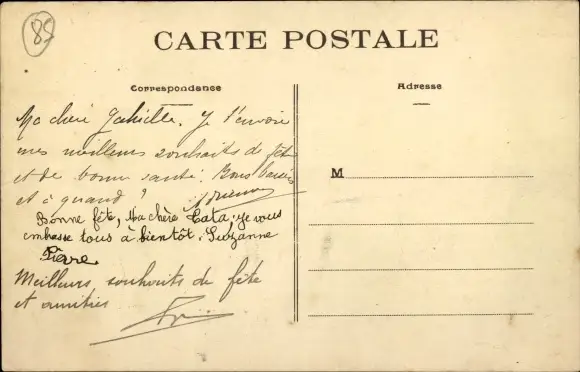 85
CARTE POSTALE
Correspondance
Adresse
Ma chère Gabrielle. Je t'envoie
mes meilleurs souhaits de fête
et de bonne santé. Bons baisers
et à quand ?
Bonne fête, Ma chère Tata. je vous
embrasse tous à bientôt. Suzanne
Pierre
Meilleurs souhaits de fête
et amitiés
M